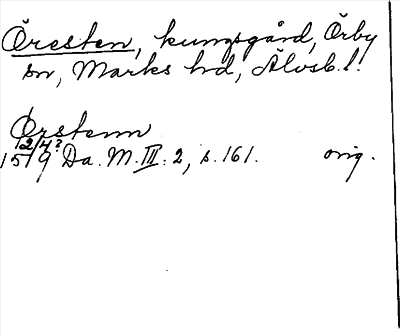 Öresten, kungsgård, Örby
sn, Marks hd, Älvsb.l.
Ørstenn
12/4?
1519 Da. M. III: 2, s. 161. orig.